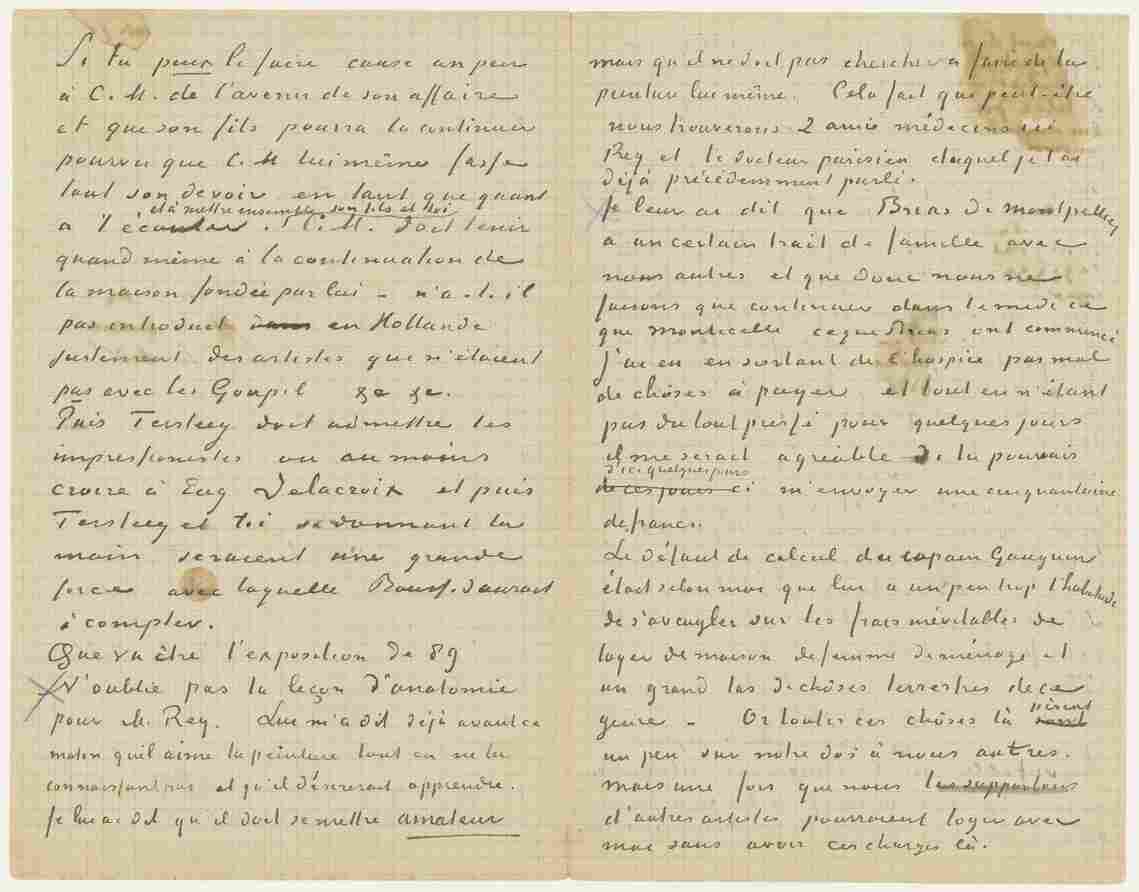 Si tu peux le faire cause un peu
à C. M. de l'avenir de son affaire
et que son fils pourra la continuer
pourvu que C. M lui même fasse
tout son devoir en tant que quant
et à mettre ensemble son fils et toi
a l'écouter. C. M. doit tenir
quand même à la continuation de
la maison fondée par lui – n'a-t-il
pas introduit dans en Hollande
justement des artistes que n'étaient
pas avec les Goupil &c &c.
Puis Tersteeg doit admettre les
impressionistes ou au moins
croire à Eug Delacroix et puis
Tersteeg et toi se donnant la
main seraient une grande
force avec laquelle Bouss. d aurait
à compter.
Que va être l'exposition de 89
N'oublie pas la leçon d'anatomie
pour M. Rey. Lui m'a dit déjà avant ce
matin qu'il aime la peinture tout en ne la
connaissant pas et qu'il désirerait apprendre.
Je lui ai dit qu'il doit se mettre amateur
mais qu il ne doit pas chercher a faire de la
peinture lui même. Cela fait que peut-être
nous trouverons 2 amis médecins ici
Rey et le docteur parisien duquel je t'ai
déjà précédemment parlé.
Je leur ai dit que Brias de Montpellier
a un certain trait de famille avec
nous autres et que donc nous ne
faisons que continuer dans le midi ce
que Monticelli ce que Brias ont commencé
J'ai eu en sortant de l'hospice pas mal
de chôses à payer et tout en n'étant
pas du tout pressé pour quelques jours
il me serait agreable si tu pouvais
d'ici quelques jours
de ces jours ci m'envoyer une cinquantaine
de francs.
Le défaut de calcul du copain Gauguin
était selon moi que lui a un peu trop l'habitude
de s'aveugler sur les frais inévitables de
loyer de maison de femme de ménage et
un grand tas de chôses terrestres de ce
pèsent
genre – Or toutes ces chôses là sont
un peu sur notre dos à nous autres.
mais une fois que nous les supportons
d'autres artistes pourraient loger avec
moi sans avoir ces charges là.